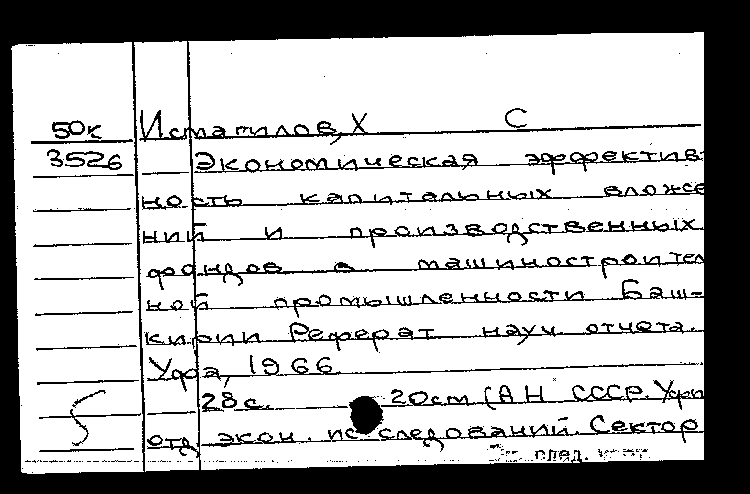 50к Исмагилов, Х С
3526 Экономическая эффектив
ность капитальных вложе
ний и производственных
фондов в машиностроител
ной промышленности Баш-
кирии Реферат науч. отчета.
Уфа, 1966
28с. 20см (АН СССР. Уфи
отд экон. исследований. Сектор
См. след. карт.